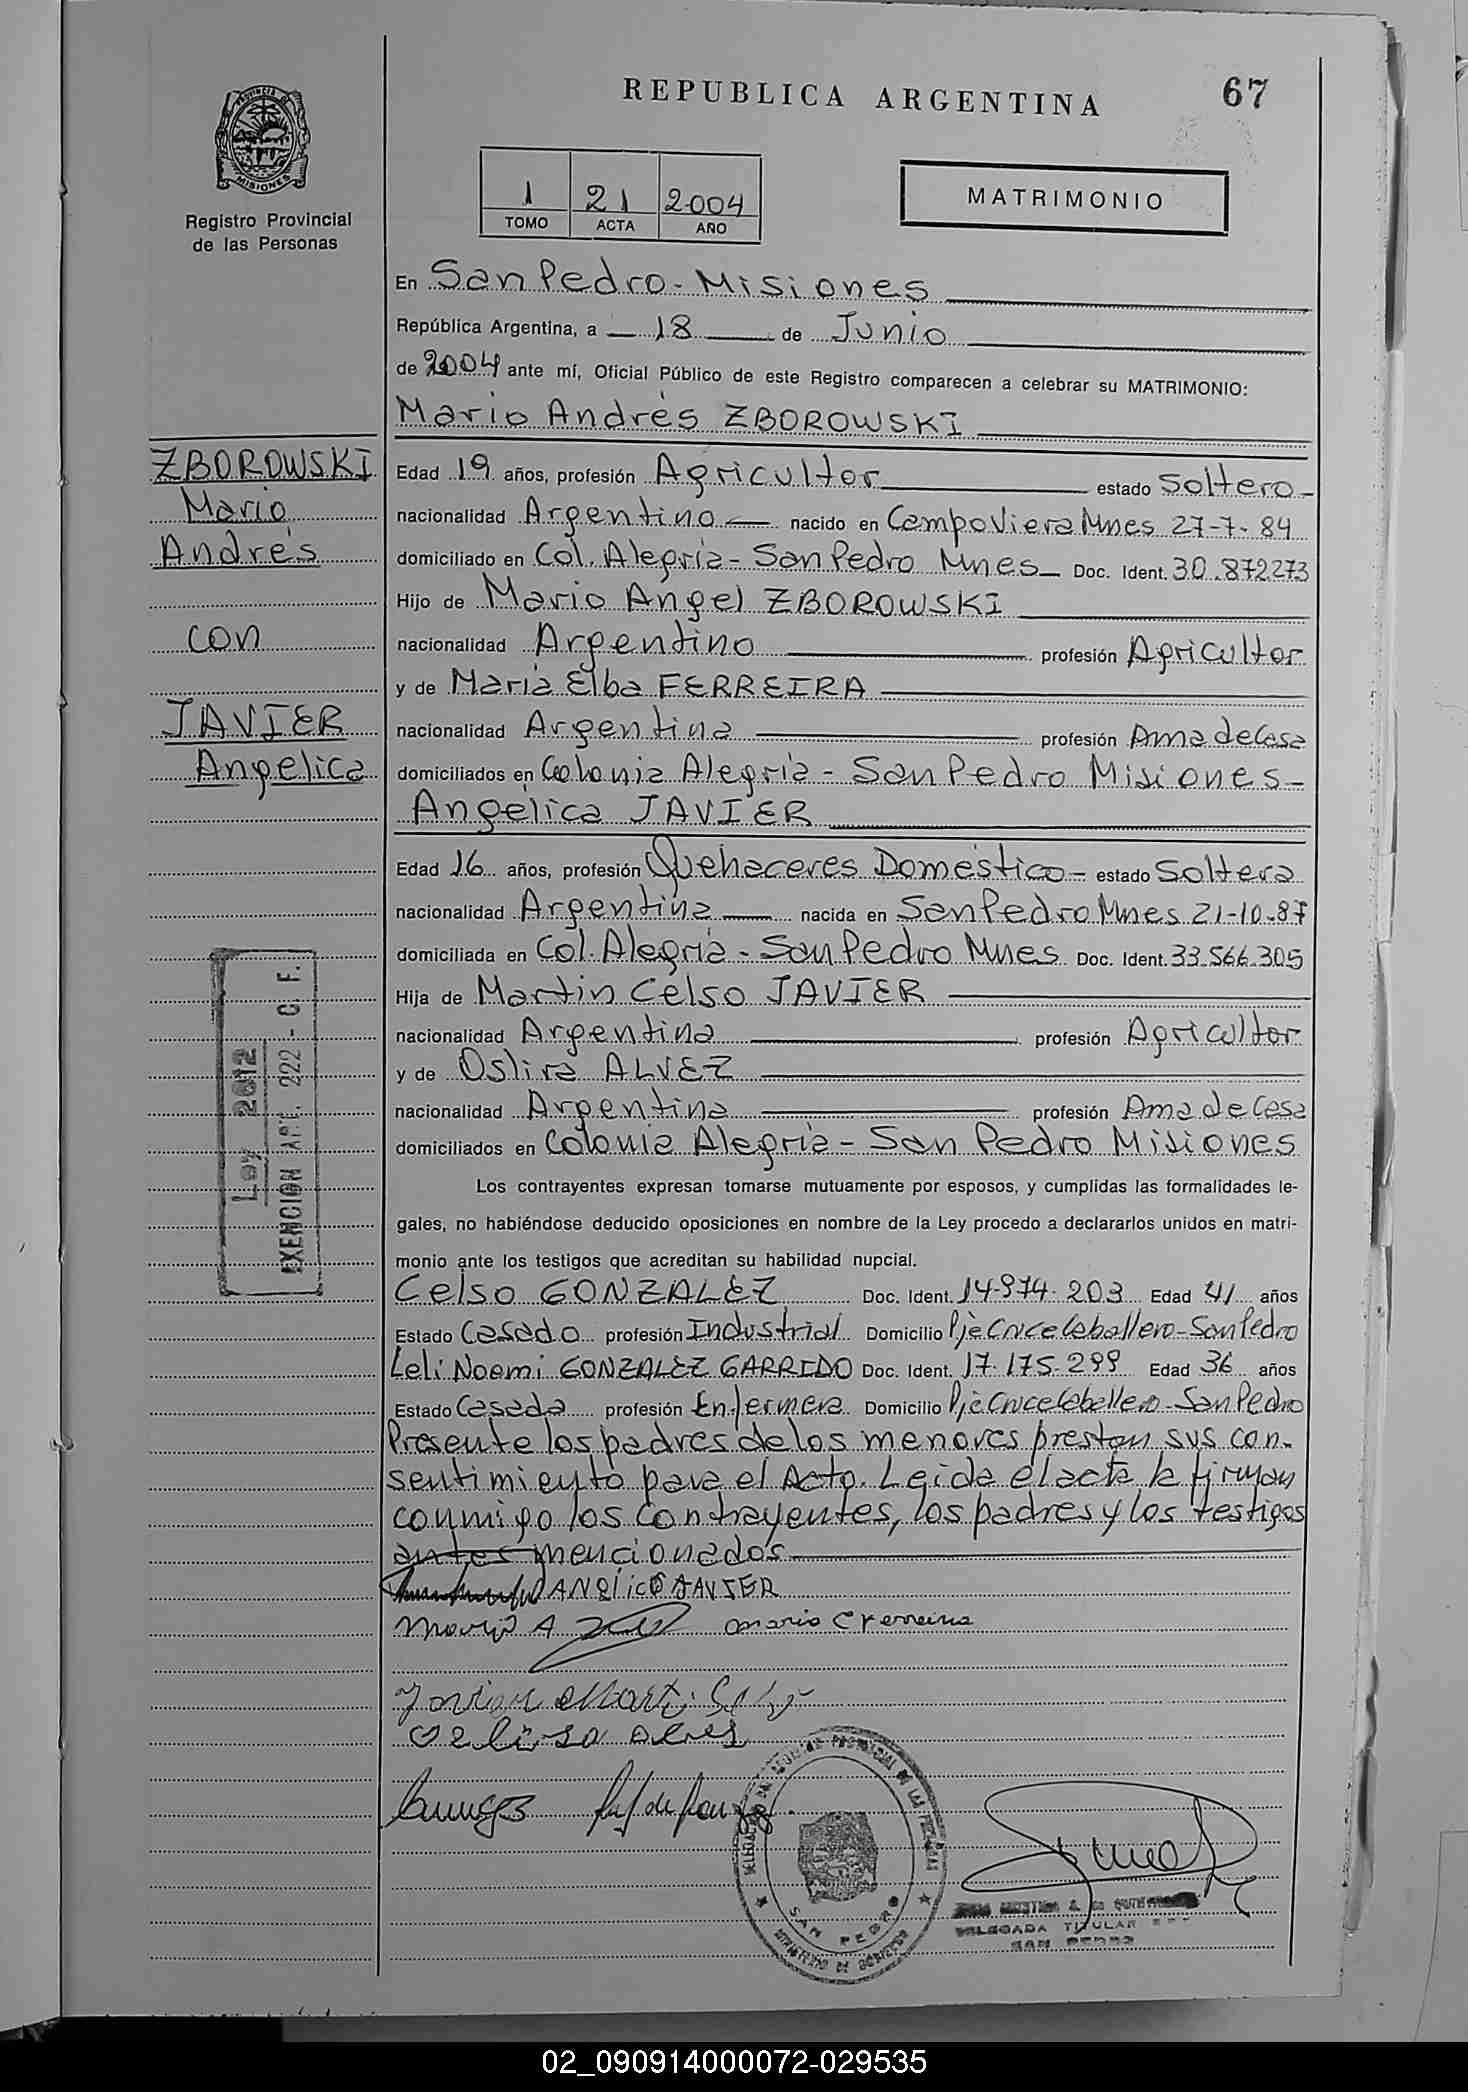 REPUBLICA ARGENTINA
67
PROVINCIA DE
MISIONES
Registro Provincial
de las Personas
1 21 2004
TOMO ACTA AÑO
MATRIMONIO
En San Pedro - Misiones
República Argentina, a 18 de Junio
de 2004 ante mí, Oficial Público de este Registro comparecen a celebrar su MATRIMONIO:
Mario Andrés ZBOROWSKI
ZBOROWSKI
Mario
Andrés
con
JAVIER
Angelica
Edad 19 años, profesión Agricultor estado Soltero-
nacionalidad Argentino nacido en Campo Viera Mnes 27-7-84
domiciliado en Col. Alegría - San Pedro Mnes Doc. Ident. 30.872.273
Hijo de Mario Angel ZBOROWSKI
nacionalidad Argentino profesión Agricultor
y de Maria Elba FERREIRA
nacionalidad Argentina profesión Ama de Casa
domiciliados en Colonia Alegría - San Pedro Misiones-
Angélica JAVIER
Edad 16 años, profesión Quehaceres Doméstico - estado Soltera
nacionalidad Argentina nacida en San Pedro Mnes 21-10-87
domiciliada en Col. Alegría - San Pedro Mnes Doc. Ident. 33.566.305
Hija de Martin Celso JAVIER
nacionalidad Argentina profesión Agricultor
y de Oslira ALVEZ
nacionalidad Argentina profesión Ama de Casa
domiciliados en Colonia Alegría - San Pedro Misiones
Ley 2612
EXENCION ART. 222 - C. F.
Los contrayentes expresan tomarse mutuamente por esposos, y cumplidas las formalidades le-
gales, no habiéndose deducido oposiciones en nombre de la Ley procedo a declararlos unidos en matri-
monio ante los testigos que acreditan su habilidad nupcial.
Celso GONZALEZ Doc. Ident. 14-974-203 Edad 41 años
Estado Casado profesión Industrial Domicilio Pje Cruce Caballero - San Pedro
Leli Noemi GONZALEZ GARRIDO Doc. Ident. 17.175.299 Edad 36 años
Estado Casada profesión Enfermera Domicilio Pje Cruce Caballero - San Pedro
Presente los padres de los menores prestan sus con-
sentimiento para el Acto. Leida el acta la firman
conmigo los contrayentes, los padres y los testigos
antes mencionados
ANgÉlica JAVIER
Mario A maria E Ferreira
Javier Marti
SAN PEDRO
MINISTERIO DE GOBIERNO
DELEGADA TITULAR
SAN PEDRO
02_090914000072-029535